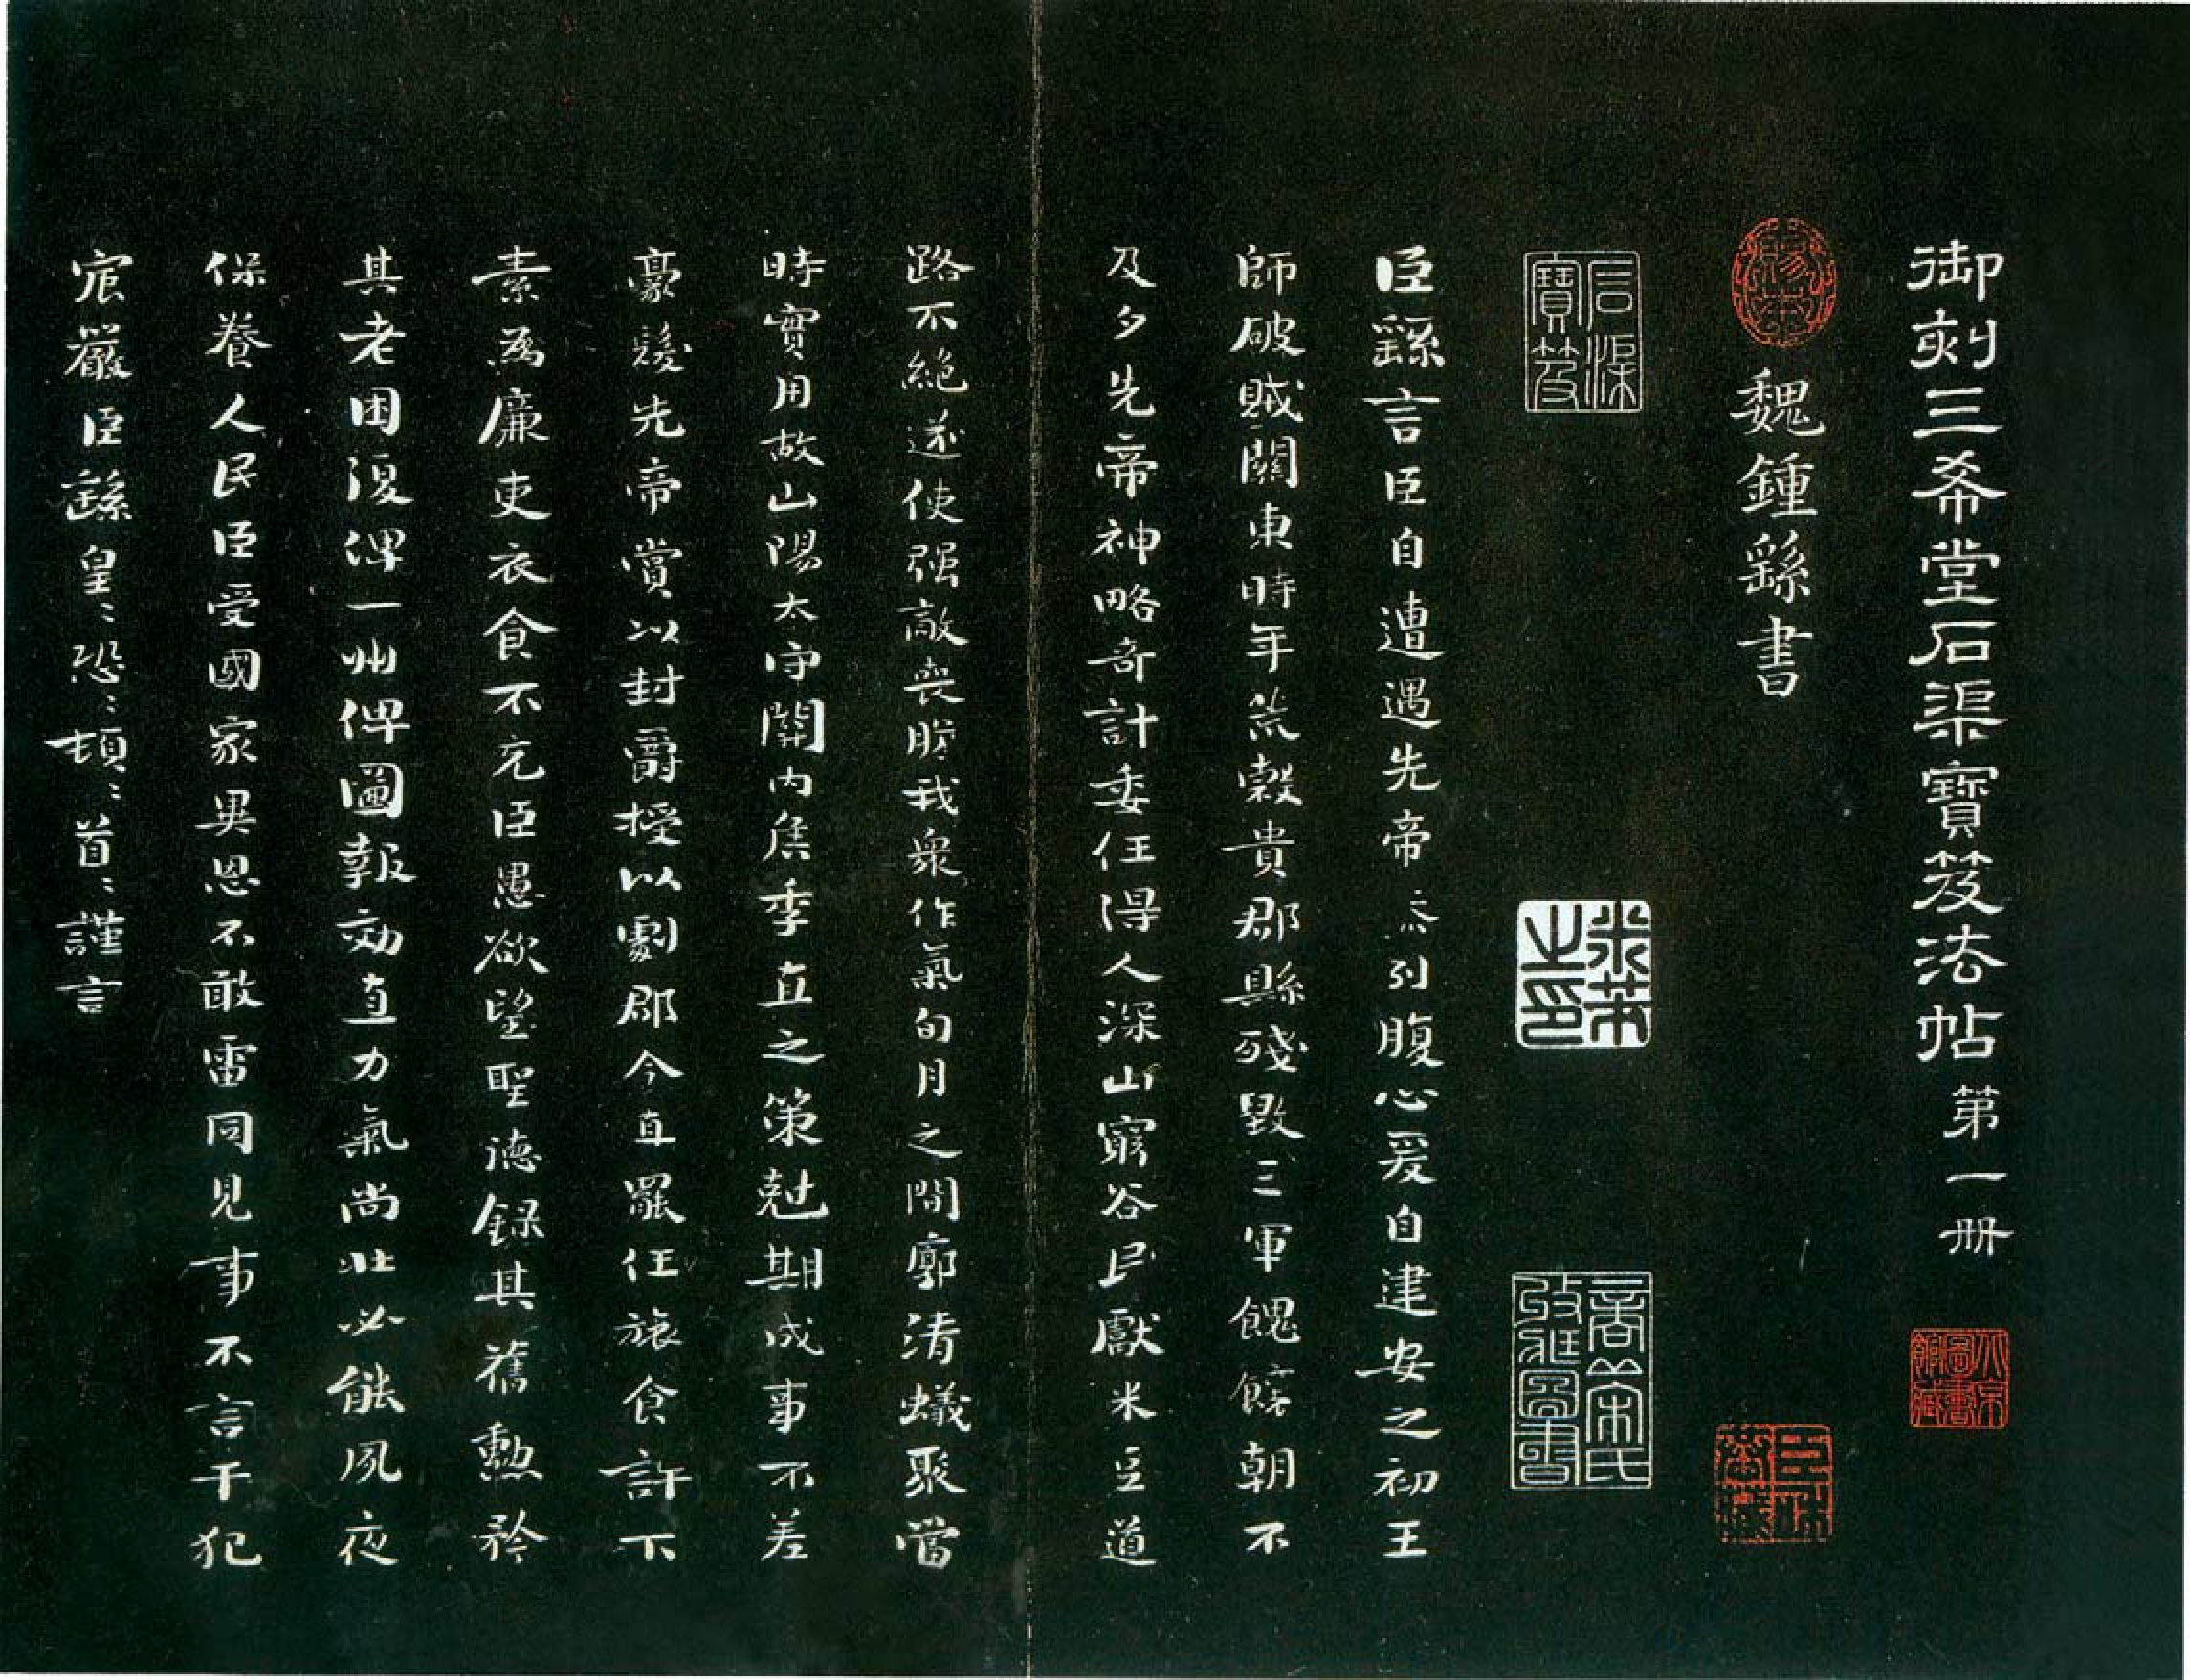 御刻三希堂石渠寶笈法帖第一册
魏鍾繇書
石渠寶笈
臣繇言臣自遭遇先帝忝列腹心爰自建安之初王
師破賊關東時年荒穀貴郡縣殘毀三軍餽饟朝不
及夕先帝神略奇計委任得人深山窮谷民獻米豆道
路不絕遂使强敵喪膽我衆作氣旬月之間廓清蟻聚當
時實用故山陽太守關内侯季直之策尅期成事不差
豪髮先帝賞以封爵授以劇郡今直罷任旅食許下
素爲廉吏衣食不充臣愚欲望聖德録其舊勲矜
其老困復俾一州俾圖報効直力氣尚壯必能夙夜
保養人民臣受國家異恩不敢雷同見事不言干犯
宸嚴臣繇皇〻恐〻頓〻首〻謹言